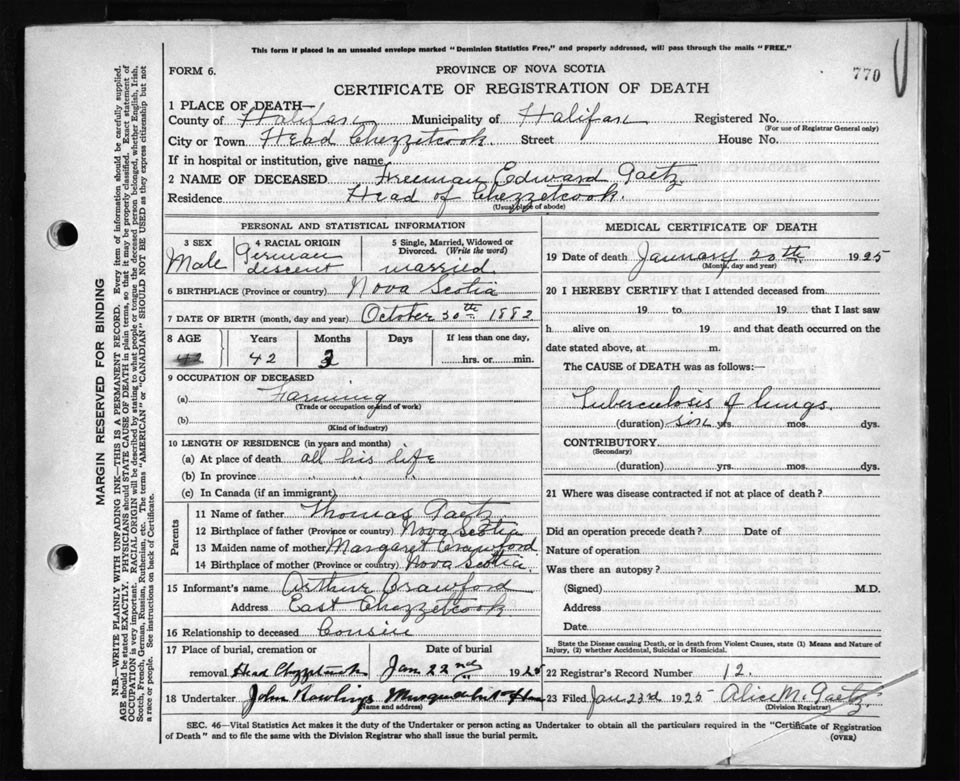 This form if placed in an unsealed envelope marked "Dominion Statistics Free," and properly addressed, will pass through the mails "FREE."
FORM 6.
PROVINCE OF NOVA SCOTIA
770
CERTIFICATE OF REGISTRATION OF DEATH
1 PLACE OF DEATH—
County of Halifax Municipality of Halifax Registered No.
(For use of Registrar General only)
City or Town Head Chezzetcook. Street House No.
If in hospital or institution, give name
2 NAME OF DECEASED Freeman Edward Gaetz.
Residence Head of Chezzetcook.
(Usual place of abode)
PERSONAL AND STATISTICAL INFORMATION
3 SEX Male
4 RACIAL ORIGIN German descent
5 Single, Married, Widowed or Divorced. (Write the word) married
6 BIRTHPLACE (Province or country) Nova Scotia
7 DATE OF BIRTH (month, day and year) October 20th 1882
8 AGE Years Months Days If less than one day,
42 42 3 hrs. or min.
9 OCCUPATION OF DECEASED
(a) Farming
(Trade or occupation or kind of work)
(b)
(Kind of industry)
10 LENGTH OF RESIDENCE (in years and months)
(a) At place of death all his life
(b) In province " " "
(c) In Canada (if an immigrant)
Parents
11 Name of father Thomas Gaetz
12 Birthplace of father (Province or country) Nova Scotia
13 Maiden name of mother Margaret Crawford
14 Birthplace of mother (Province or country) Nova Scotia.
15 Informant's name Arthur Crawford
Address East Chezzetcook
16 Relationship to deceased Cousin
17 Place of burial, cremation or Date of burial
removal Head Chezzetcook Jan 22nd 1925
18 Undertaker John Rawlings Musquodoboit
(Name and address)
MEDICAL CERTIFICATE OF DEATH
19 Date of death January 20th 1925
(Month, day and year)
20 I HEREBY CERTIFY that I attended deceased from
19 to 19 that I last saw
h alive on 19 and that death occurred on the
date stated above, at m.
The CAUSE of DEATH was as follows:—
Tuberculosis of lungs.
(duration) six yrs. mos. dys.
CONTRIBUTORY
(Secondary)
(duration) yrs. mos. dys.
21 Where was disease contracted if not at place of death?
Did an operation precede death? Date of
Nature of operation
Was there an autopsy?
(Signed) M.D.
Address
Date
State the Disease causing Death, or in death from Violent Causes, state (1) Means and Nature of
Injury, (2) whether Accidental, Suicidal or Homicidal.
22 Registrar's Record Number 12.
23 Filed Jan 23rd 1925 Alice M. Gaetz.
(Division Registrar)
SEC. 46—Vital Statistics Act makes it the duty of the Undertaker or person acting as Undertaker to obtain all the particulars required in the "Certificate of Registration
of Death" and to file the same with the Division Registrar who shall issue the burial permit.
(OVER)
MARGIN RESERVED FOR BINDING
N.B.—WRITE PLAINLY WITH UNFADING INK—THIS IS A PERMANENT RECORD. Every item of information should be carefully supplied.
AGE should be stated EXACTLY. PHYSICIANS should STATE CAUSE OF DEATH in plain terms, so that it may be properly classified. Exact statement of
OCCUPATION is very important. RACIAL ORIGIN will be described by stating to what people or tongue the deceased person belonged, whether English, Irish,
Scotch, French, German, Russian, Ruthenian, etc. The terms "AMERICAN" or "CANADIAN" SHOULD NOT BE USED as they express citizenship but not
a race or people. See instructions on back of Certificate.